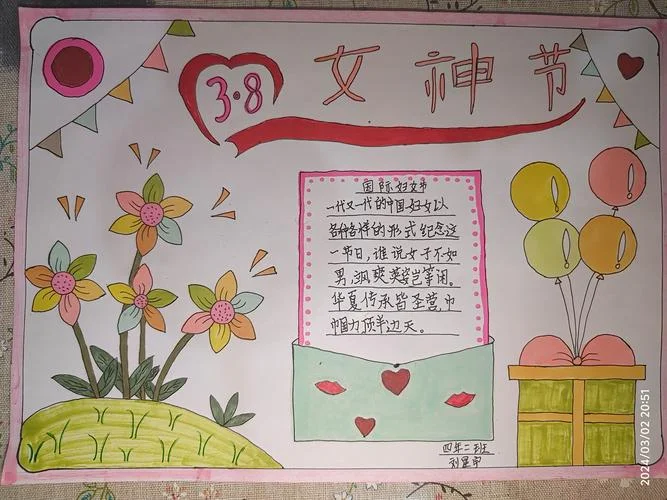 3·8
女神节
国际妇女节
一代又一代的中国妇女以
各种各样的形式纪念这
一节日，谁说女子不如
男，飒爽英姿岂等闲。
华夏传承皆圣贤，巾
帼力顶半边天。
四年二班
2024/03/02 20:51